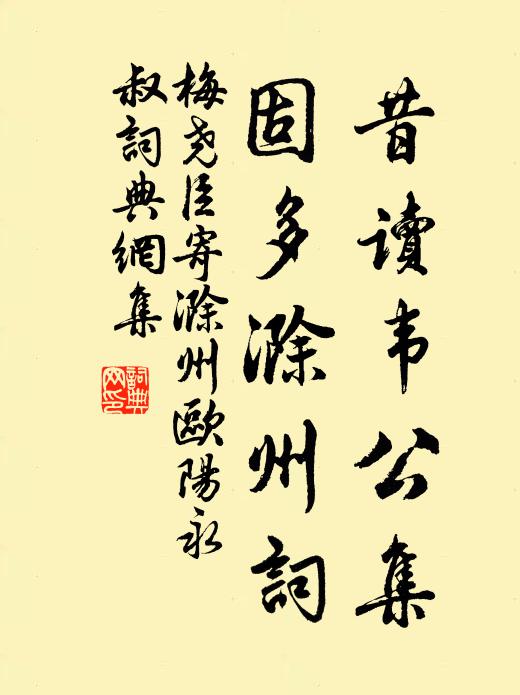 昔讀韦公集
固多滁州詞
梅尧臣寄滁州歐陽永
叔詞典網集
詞典
网印